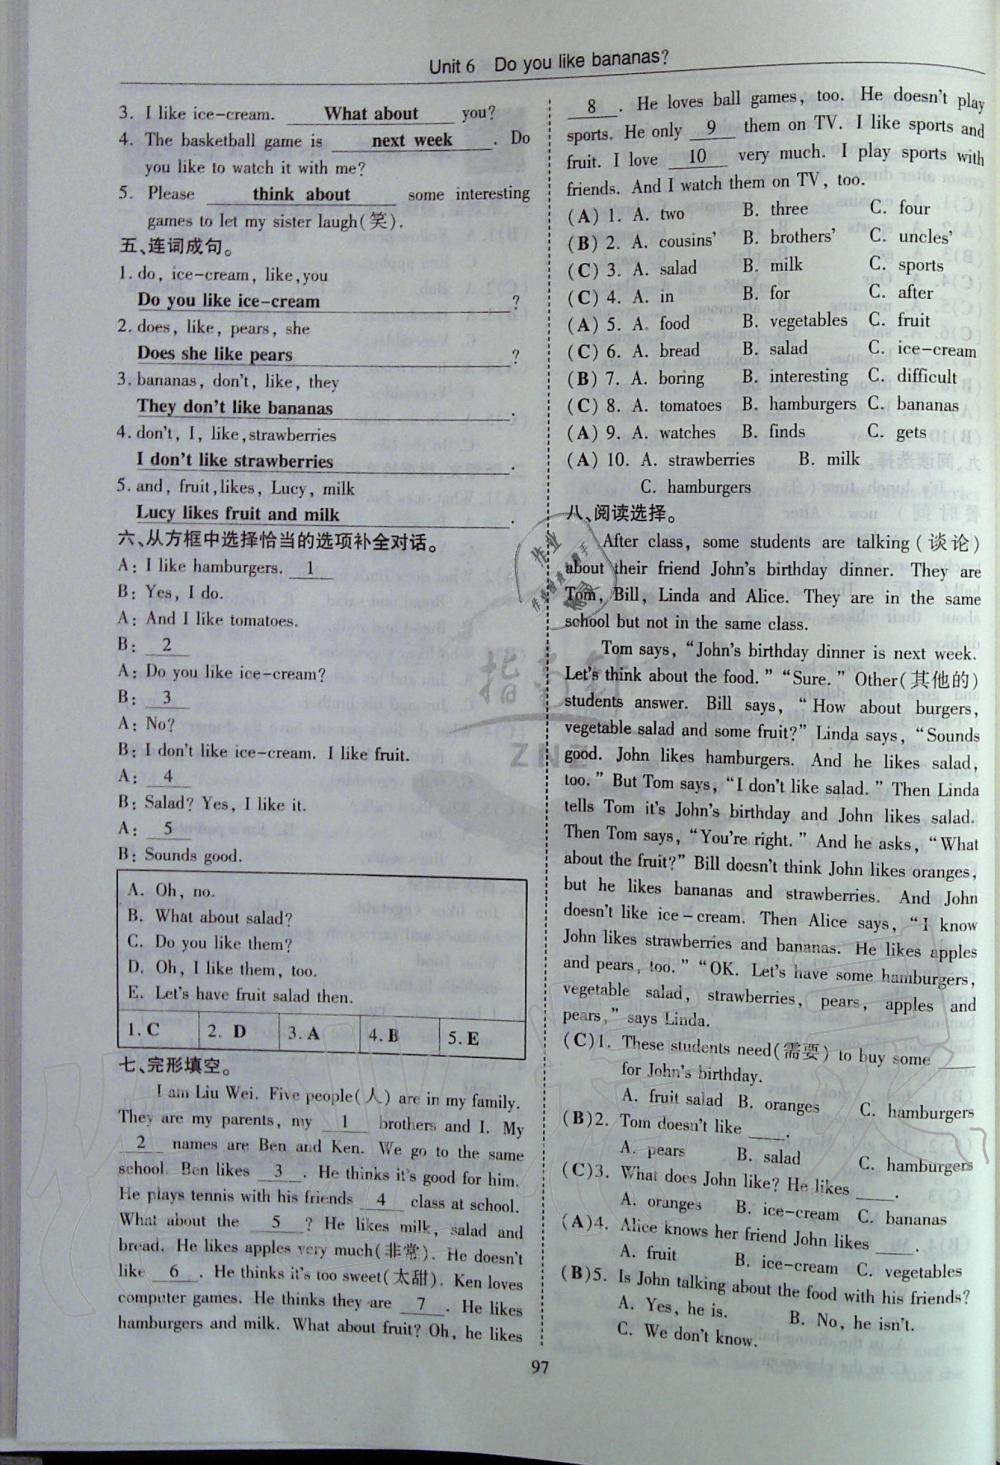 Unit 6 Do you like bananas?
3. I like ice-cream. What about you?
4. The basketball game is next week. Do
you like to watch it with me?
5. Please think about some interesting
games to let my sister laugh(笑).
五、连词成句。
1. do, ice-cream, like, you
Do you like ice-cream ?
2. does, like, pears, she
Does she like pears ?
3. bananas, don't, like, they
They don't like bananas .
4. don't, I, like, strawberries
I don't like strawberries .
5. and, fruit, likes, Lucy, milk
Lucy likes fruit and milk .
六、从方框中选择恰当的选项补全对话。
A: I like hamburgers. 1
B: Yes, I do.
A: And I like tomatoes.
B: 2
A: Do you like ice-cream?
B: 3
A: No?
B: I don't like ice-cream. I like fruit.
A: 4
B: Salad? Yes, I like it.
A: 5
B: Sounds good.
A. Oh, no.
B. What about salad?
C. Do you like them?
D. Oh, I like them, too.
E. Let's have fruit salad then.
1. C 2. D 3. A 4. B 5. E
七、完形填空。
I am Liu Wei. Five people(人) are in my family.
They are my parents, my 1 brothers and I. My
2 names are Ben and Ken. We go to the same
school. Ben likes 3 . He thinks it's good for him.
He plays tennis with his friends 4 class at school.
What about the 5 ? He likes milk, salad and
bread. He likes apples very much(非常). He doesn't
like 6 . He thinks it's too sweet(太甜). Ken loves
computer games. He thinks they are 7 . He likes
hamburgers and milk. What about fruit? Oh, he likes
8 . He loves ball games, too. He doesn't play
sports. He only 9 them on TV. I like sports and
fruit. I love 10 very much. I play sports with
friends. And I watch them on TV, too.
(A) 1. A. two B. three C. four
(B) 2. A. cousins' B. brothers' C. uncles'
(C) 3. A. salad B. milk C. sports
(C) 4. A. in B. for C. after
(A) 5. A. food B. vegetables C. fruit
(C) 6. A. bread B. salad C. ice-cream
(B) 7. A. boring B. interesting C. difficult
(C) 8. A. tomatoes B. hamburgers C. bananas
(A) 9. A. watches B. finds C. gets
(A) 10. A. strawberries B. milk
C. hamburgers
八、阅读选择。
After class, some students are talking(谈论)
about their friend John's birthday dinner. They are
Tom, Bill, Linda and Alice. They are in the same
school but not in the same class.
Tom says, "John's birthday dinner is next week.
Let's think about the food." "Sure." Other(其他的)
students answer. Bill says, "How about burgers,
vegetable salad and some fruit?" Linda says, "Sounds
good. John likes hamburgers. And he likes salad,
too." But Tom says, "I don't like salad." Then Linda
tells Tom it's John's birthday and John likes salad.
Then Tom says, "You're right." And he asks, "What
about the fruit?" Bill doesn't think John likes oranges,
but he likes bananas and strawberries. And John
doesn't like ice-cream. Then Alice says, "I know
John likes strawberries and bananas. He likes apples
and pears, too." "OK. Let's have some hamburgers,
vegetable salad, strawberries, pears, apples and
pears," says Linda.
(C)1. These students need(需要) to buy some ____
for John's birthday.
A. fruit salad B. oranges C. hamburgers
(B)2. Tom doesn't like ____.
A. pears B. salad C. hamburgers
(C)3. What does John like? He likes ____.
A. oranges B. ice-cream C. bananas
(A)4. Alice knows her friend John likes ____.
A. fruit B. ice-cream C. vegetables
(B)5. Is John talking about the food with his friends?
A. Yes, he is. B. No, he isn't.
C. We don't know.
97
ZNZ